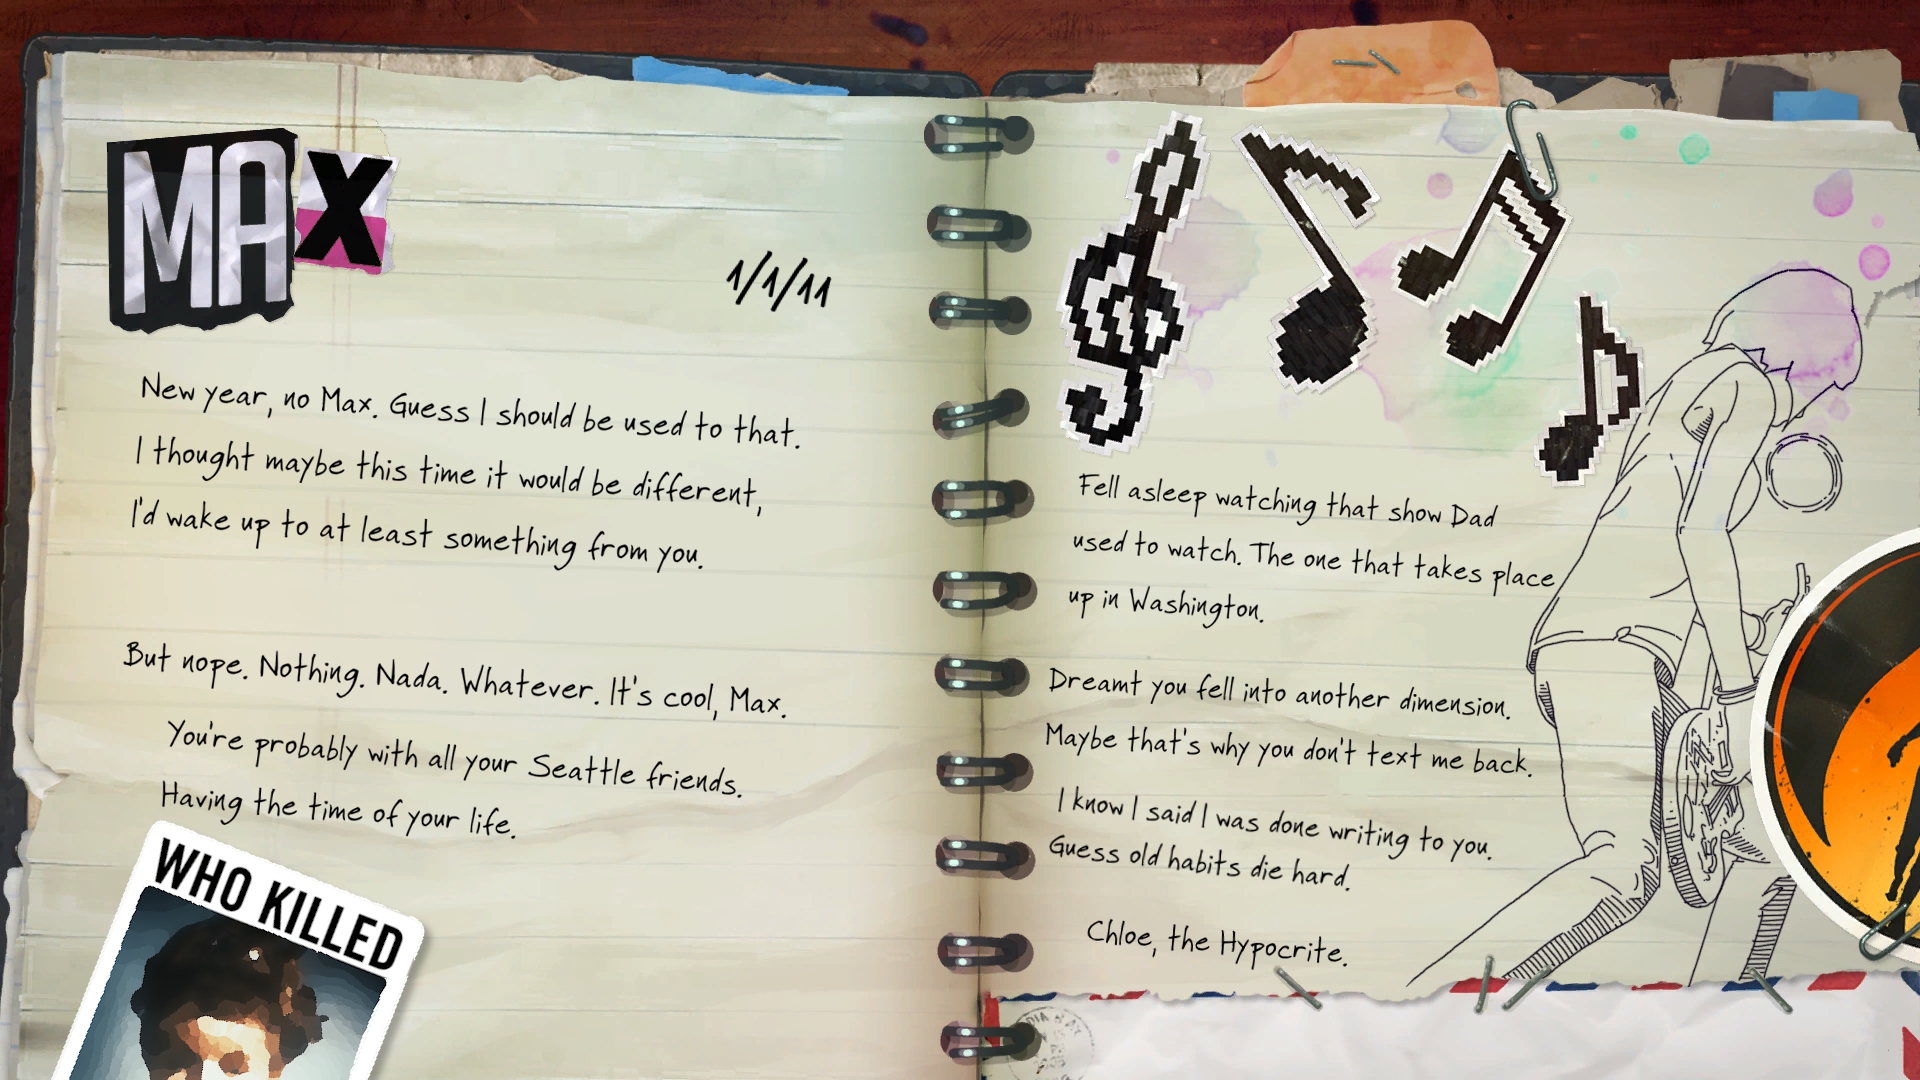 MAX
1/1/11
New year, no Max. Guess I should be used to that.
I thought maybe this time it would be different,
I'd wake up to at least something from you.
But nope. Nothing. Nada. Whatever. It's cool, Max.
You're probably with all your Seattle friends.
Having the time of your life.
WHO KILLED
Fell asleep watching that show Dad
used to watch. The one that takes place
up in Washington.
Dreamt you fell into another dimension.
Maybe that's why you don't text me back.
I know I said I was done writing to you.
Guess old habits die hard.
Chloe, the Hypocrite.